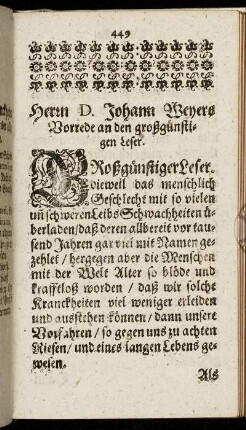 449
Herrn D. Johann Weyers
Vorrede an den großgünsti-
gen Leser.
GRoßgünstiger Leser.
dieweil das menschlich
Geschlecht mit so vielen
uñ schweren Leibs Schwachheiten ü-
berladen/daß deren allbereit vor tau-
send Jahren gar viel mit Namen ge-
zehlet/hergegen aber die Menschen
mit der Welt Alter so blöde und
krafftloß worden/daß wir solche
Kranckheiten viel weniger erleiden
und ausstehen können/dann unsere
Vorfahren/so gegen uns zu achten
Riesen/und eines langen Lebens ge-
wesen.
Als